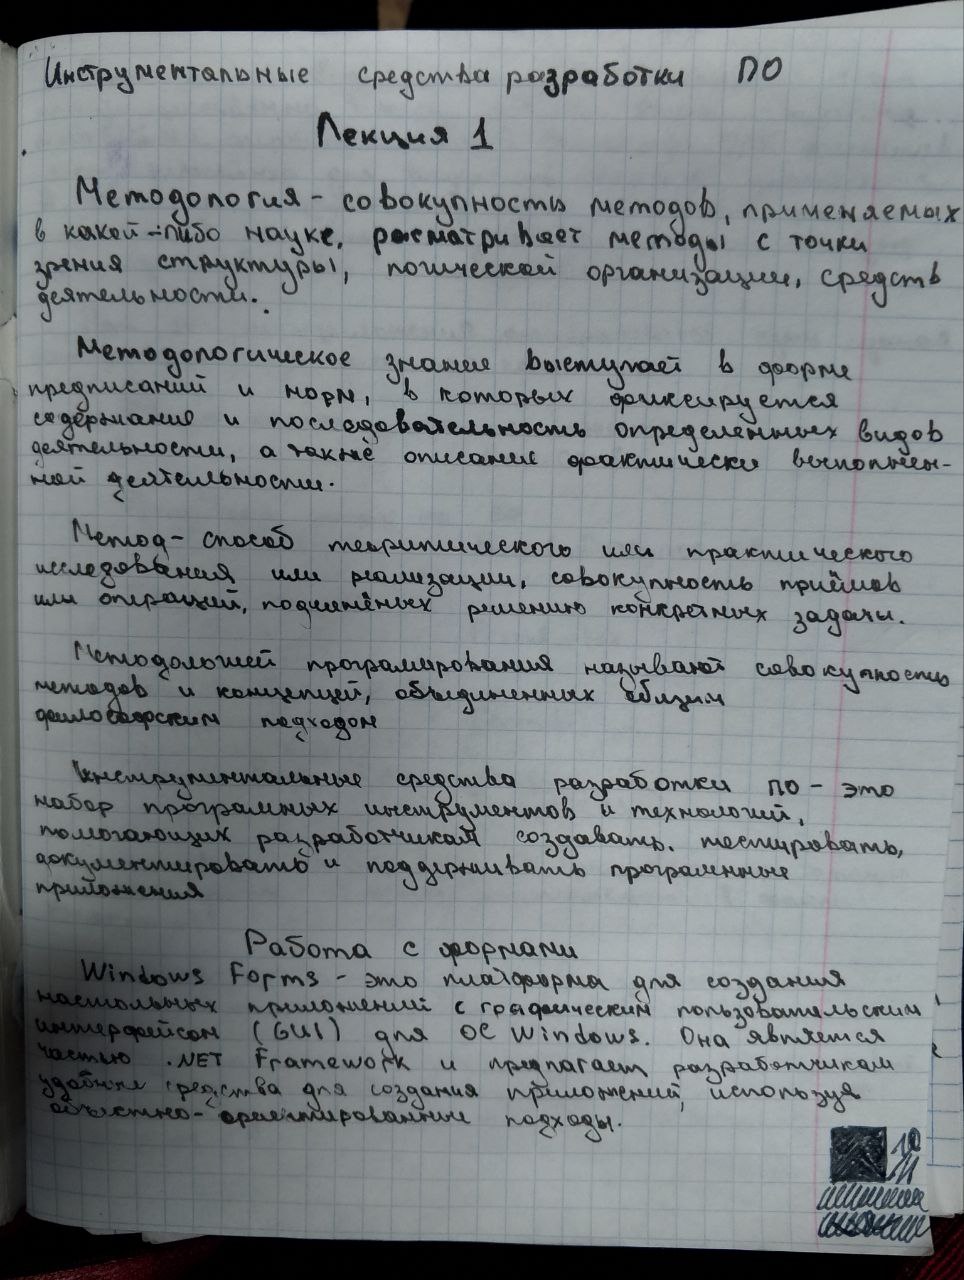 Инструментальные средства разработки ПО
Лекция 1
Методология - совокупность методов, применяемых
в какой-либо науке, рассматривает методы с точки
зрения структуры, логической организации, средств
деятельности.
Методологическое знание выступает в форме
предписаний и норм, в которых фиксируется
содержание и последовательность определенных видов
деятельности, а также описание фактически выполнен-
ной деятельности.
Метод - способ теоритического или практического
исследования или реализации, совокупность приёмов
или операций, подчинёных решению конкретных задачи.
Методологией программирования называют совокупность
методов и концепций, объединенных общим
философским подходом
Инструментальные средства разработки ПО - это
набор програмных инструментов и технологий,
помогающих разработчикам создавать, тестировать,
документировать и поддерживать програмные
приложения
Работа с формами
Windows Forms - это платформа для создания
настольных приложений с графическим пользовательским
интерфейсом (GUI) для ОС Windows. Она является
частью .NET Framework и предлагает разработчикам
удобные средства для создания приложений, используя
объектно-ориентированные подходы.